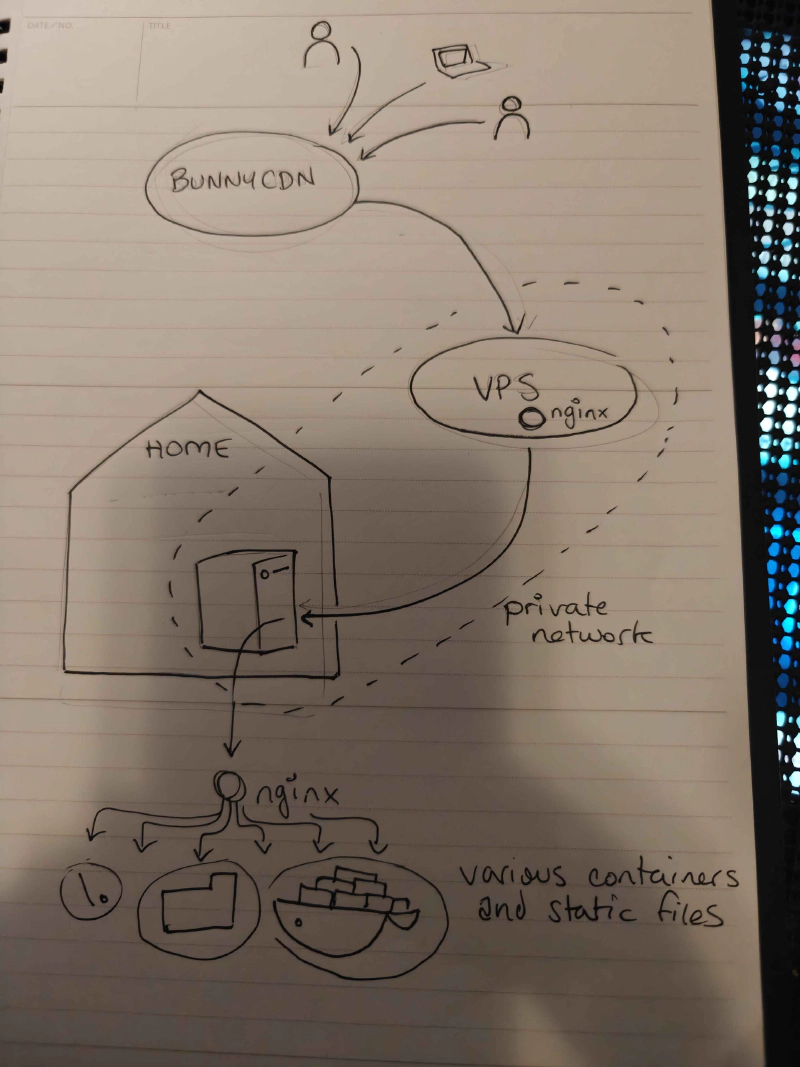 DATE/NO.
TITLE
BUNNYCDN
VPS
nginx
HOME
private
network
nginx
various containers
and static files